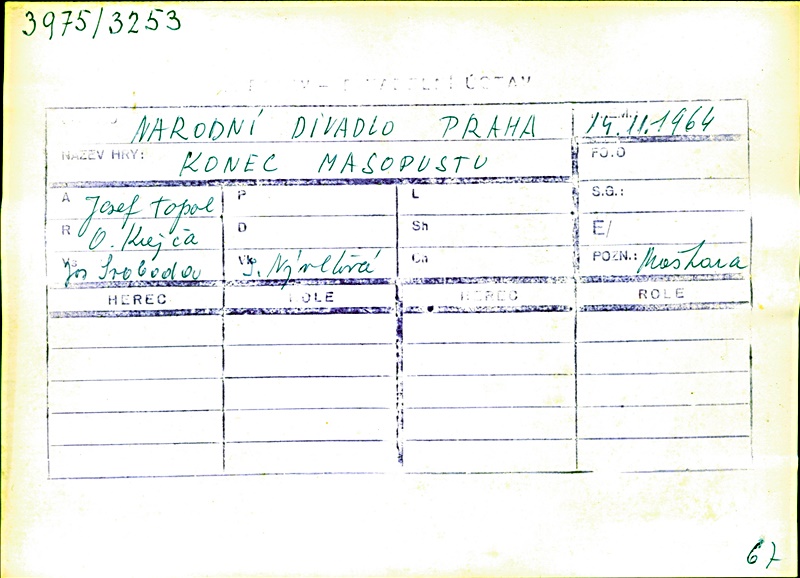 3975/3253
ÚSTAV
NARODNÍ DIVADLO PRAHA 14.11.1964
NÁZEV HRY: KONEC MASOPUSTU FO.O
A Josef Topol P L S.G.:
R O. Krejča D Sh E/
Vs Jos Svoboda Vk Š. Nývltová Ch POZN.: Maškara
HEREC ROLE HEREC ROLE
67